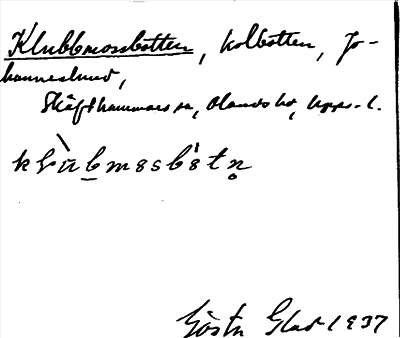 Klubbmossbotten, kolbotten, Jo-
hanneslund,
Skäfthammars sn, Olands hd, Upps. l.
Gösta Glad 1937